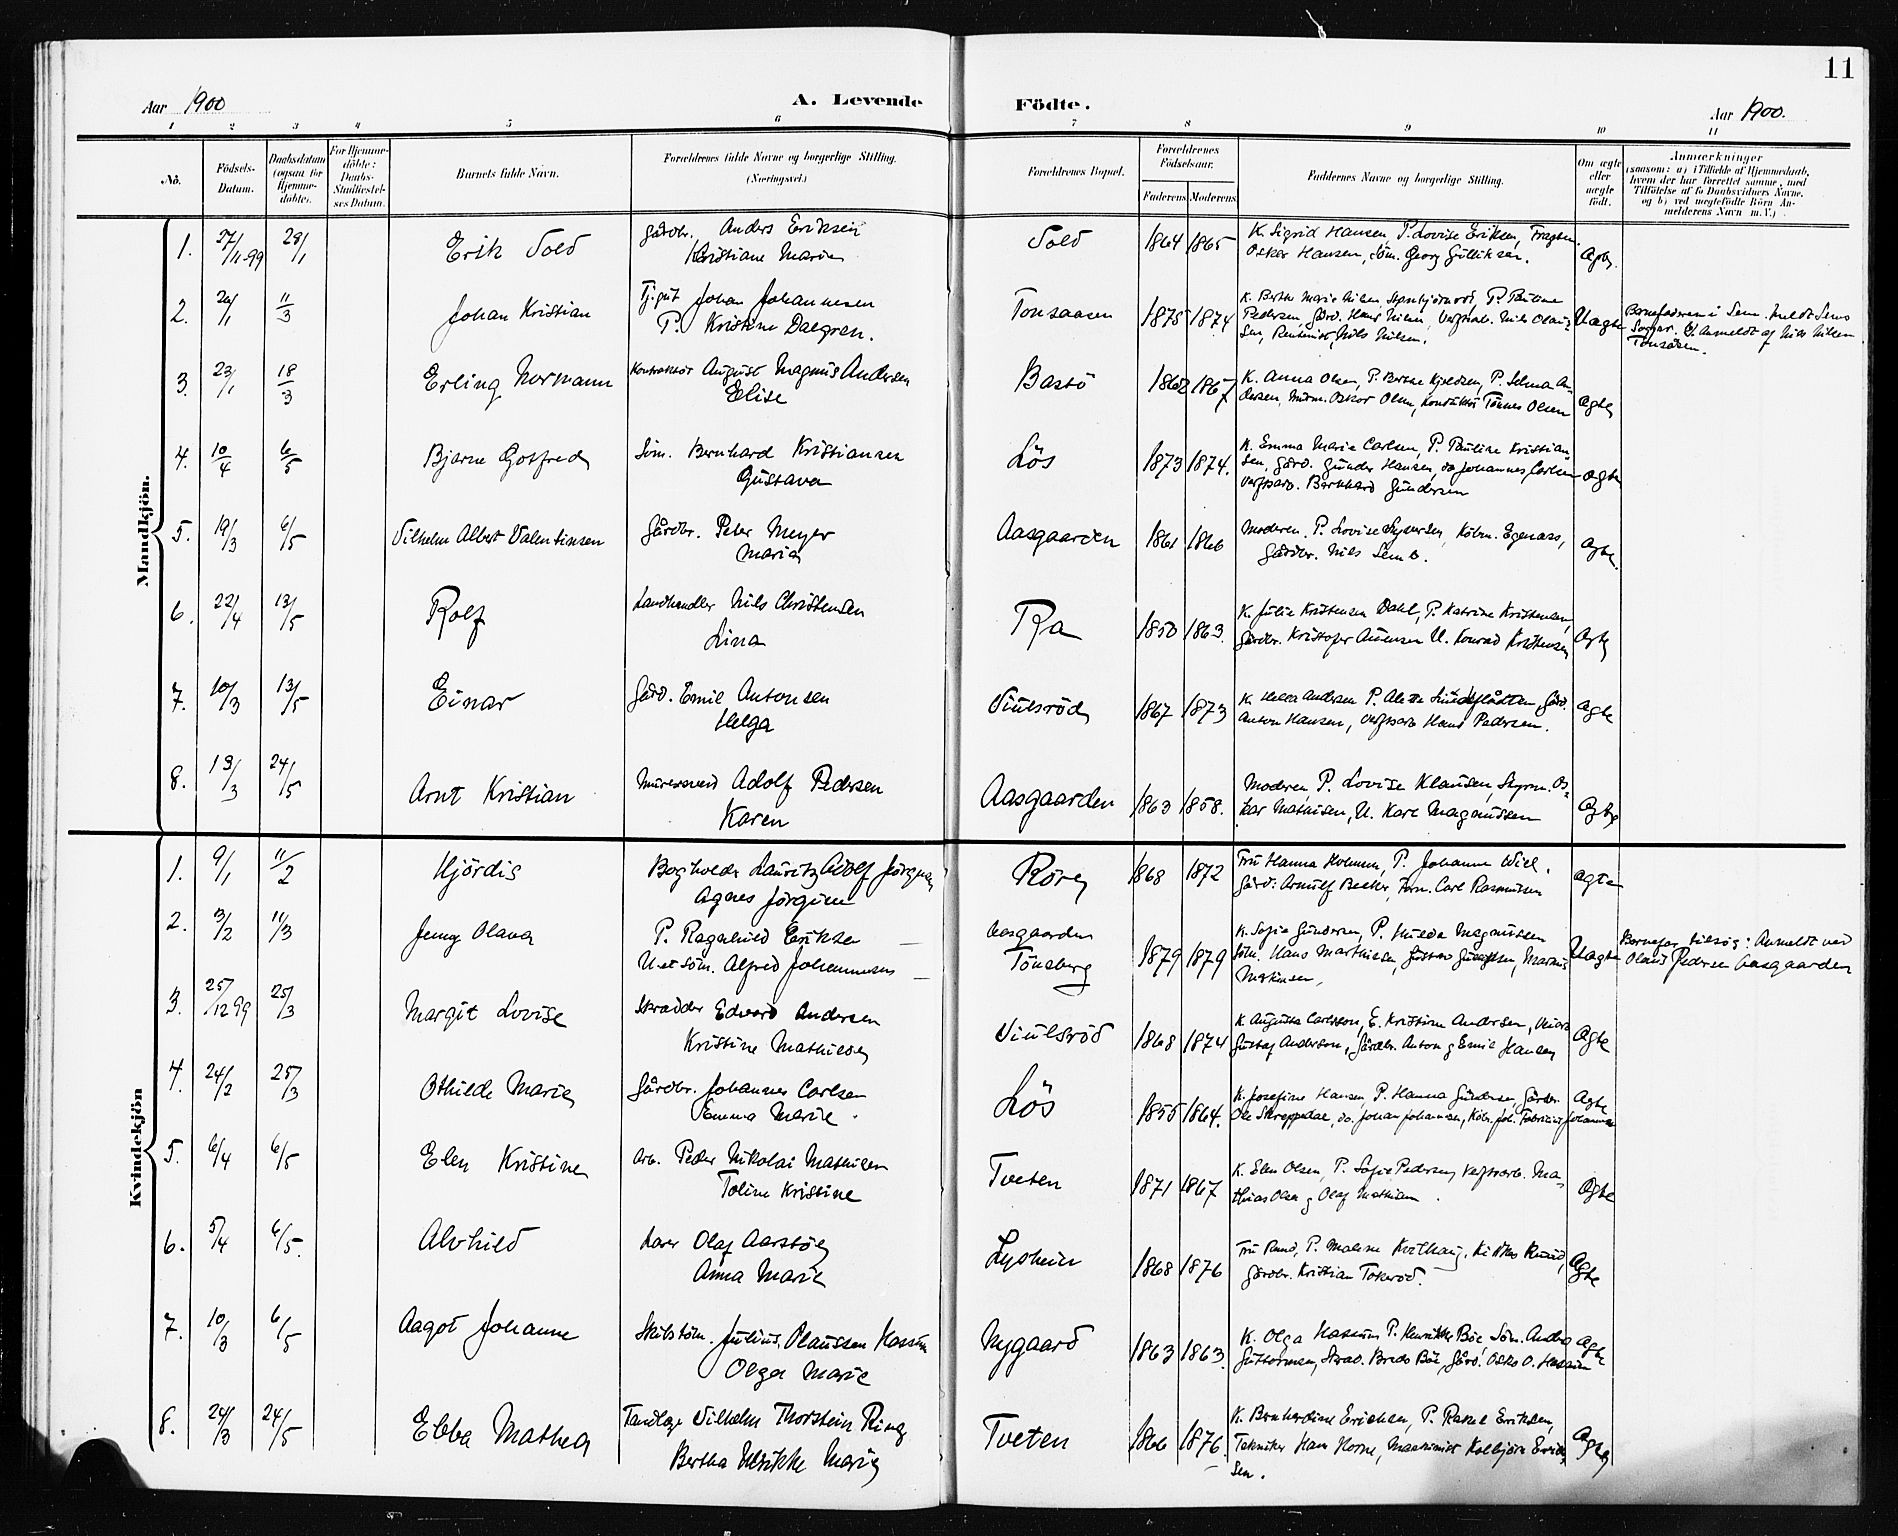 11
Aar 1900
A. Levende
Födte.
Aar 1900.
1 2 3 4 5 6 7 8 9 10 11
No.
Födsels-
Datum.
Daabsdatum
(ogsaa for
Hjemme-
döbte).
For Hjemme-
döbte:
Daabs-
Stadfæstel-
ses Datum.
Barnets fulde Navn.
Forældrenes fulde Navne og borgerlige Stilling.
(Næringsvei.)
Forældrenes Bopæl.
Forældrenes
Födselsaar.
Faderens
Moderens
Faddernes Navne og borgerlige Stilling.
Om ægte
eller
uægte
födt.
Anmærkninger
(saasom: a) i Tilfælde af Hjemmedaab,
hvem der har forrettet samme, med
Tilföielse af to Daabsvidners Navne,
og b) ved uægtefödte Börn An-
melderens Navn m.V.)
Mandkjön.
1. 27/11-99 28/1 Erik Solv Gårdbr. Anders Eriksen
Kristiane Marie
1864 1865 K. Sigrid Hansen, P. Lovise Eriksen,
Oskar Hansen, Söm. Georg Gulliksen.
2. 11/3 Johan Kristian Tj.gut Johan Johannesen
P. Kristine Dalgren.
Tonsaasen 1875 1874 K. Berthe Marie Nilsen, P. Pauline
Pedersen, Gårdb. Hans Nilsen, Verftsarb. Nils Olaus-
sen, Nils Nilsen.
Uægte
Barnefaderen i Sem.
Anmeldt af Nils Nilsen
Tonsåsen.
3. 23/1 18/3 Erling Normann August Magnus Andersen
Elise
Bastö 1862 1867 K. Anna Olsen, P. Berthe Kjeldsen, P. Selma An-
dersen, Oskar Olsen, Tönnes Olsen
Ægte
4. 10/4 6/5 Bjarne Gotfred Söm. Bernhard Kristiansen
Gustava
Lös 1873 1874. K. Emma Marie Carlsen, P. Pauline Kristian-
sen, Gårdb. Gunder Hansen, do Johannes Carlsen
Verftsarb. Bernhard Gundersen
Ægte
5. 19/3 6/5 Vilhelm Albert Valentinsen Gårdbr. Peter Meyer
Maria
Aasgaarden 1861 1866 Moderen. P. Lovise Syversen, Köbm. Egenæss,
Gårdbr. Nils Sem.
Ægte.
6. 22/4 13/5 Rolf Landhandler Nils Christensen
Lina
Ra 1850 1863. K. Julie Kristensen Dahl, P. Katrine Kristensen,
Gårdbr. Kristofer U. Konrad Kristensen
Ægte
7. 10/3 13/5 Einar Gårdb. Emil Antonsen
Helga
Viulsröd 1867 1873 K. Helga Andersen P. Gårdb.
Anton Hansen, Verftsarb Hans Pedersen.
Ægte
8. 13/3 24/5 Arnt Kristian Murersvend Adolf Pedersen
Karen
Aasgaarden 1863 1858. Moderen, P. Lovise Klausen, Styrm. Os-
kar Mathisen, U. Karl Magnussen
Ægte
Kvindekjön
1. 9/1 11/2 Hjördis Bogholder Lauritz Adolf Jörgensen
Agnes Jörgine
Röre 1868 1872 Fru Hanna Holmsen, P. Johanne Wiel.
Gårdb. Arnulf Becker, Carl Rasmussen
Ægte
2. 11/3 Jenny Olava P. Ragnhild Eriksen
Söm. Alfred Johannessen
Aasgaarden
Tönsberg
1879 1879 K. Sofie Gundersen, P. Hilda Magnussen
Söm. Hans Marthinsen, Gustav, Marius
Uægte
Anmeldt ved
Olaus Pedersen Aasgaarden
3. 25/12 99 25/3 Margit Lovise Skrædder Edvard Andersen
Kristine Mathilde
Viulsröd 1868 1874 K. Augusta Carlsson, E. Kristine Andersen,
Gustaf Anderson, Gårdbr. Anton og Emil Hansen
Ægte
4. 24/2 25/3 Othilde Marie Gårdbr. Johannes Carlsen
Emma Marie.
Lös 1855 1864. K. Josefine Hansen, P. Hanna Gundersen, Gårdbr.
Ole Skreppedal, do. Johan Johannsen,
Ægte
5. 6/4 6/5 Elen Kristine Arb. Peder Nikolai Mathisen
Toline Kristine
Tveten 1871 1867 K. Elen Olsen, P. Sofie Pedersen, Verftsarb. Ma-
thias Olsen og Olaf Mathisen.
Ægte
6. 5/4 6/5. Alvhild Lærer Olaf Aarstöl
Anna Marie
Lysheim 1868 1876 Fru Ruud, P. Malene Kvilhaug, Ruud,
Gårdbr. Kristian Tokeröd.
Ægte
7. 10/3 6/5 Aagot Johanne Julius Olaussen Hassum
Olga Marie
Nygaard 1863 1863. K. Olga Hassum P. Henrikke Böe, Söm. Andr.
Guttormsen, Bredo Böe, Gårdb. O. Hassum
Ægte
8. 24/3 24/5 Ebba Mathea Tandlæge Vilhelm Thorstein Ring
Bertha Ulrikke Marie
Tveten 1866 1876 K. Bernhardine Erichsen, P. Ragna Eriksen,
Tekniker Hans Horne, Maskinist Kolbjörn Erik-
sen.
Ægte